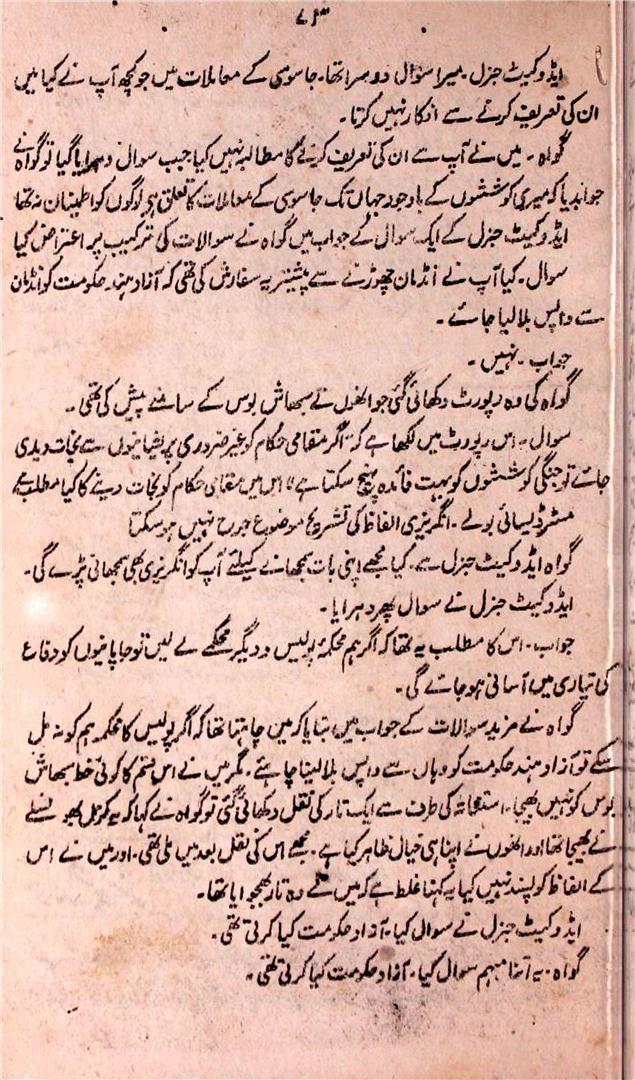 ۷۳
ایڈوکیٹ جنرل ۔ میرا سوال دوسرا تھا۔ جاسوسی کے معاملات میں جو کچھ آپ نے کیا میں
ان کی تعریف کرنے سے انکار نہیں کرتا۔
گواہ ۔ میں نے آپ سے ان کی تعریف کرنے کا مطالبہ نہیں کیا جب سوال دہرایا گیا تو گواہ نے
جواب دیا کہ میری کوششوں کے باوجود جہاں تک جاسوسی کے معاملات کا تعلق ہے لوگوں کو اطمینان نہ تھا
ایڈوکیٹ جنرل کے ایک سوال کے جواب میں گواہ نے سوالات کی ترکیب پر اعتراض کیا
سوال ۔ کیا آپ نے انڈمان چھوڑنے سے پیشتر یہ سفارش کی تھی کہ آزاد ہند حکومت کو انڈمان
سے واپس بلا لیا جائے ۔
جواب ۔ نہیں ۔
گواہ کی وہ رپورٹ دکھائی گئی جو انھوں نے سبھاش بوس کے سامنے پیش کی تھی ۔
سوال ۔ اس رپورٹ میں لکھا ہے کہ "اگر مقامی حکام کو غیر ضروری پریشانیوں سے نجات دیدی
جائے تو جنگی کوششوں کو بہت فائدہ پہنچ سکتا ہے" اس میں مقامی حکام کو نجات دینے کا کیا مطلب ہے
مسٹر ڈیسائی بولے ۔ انگریزی الفاظ کی تشریح موضوع جرح نہیں ہو سکتا
گواہ ایڈوکیٹ جنرل سے ۔ کیا مجھے اپنی بات سمجھانے کیلئے آپ کو انگریزی بھی سمجھانی پڑے گی ۔
ایڈوکیٹ جنرل نے سوال پھر دہرایا ۔
جواب ۔ اس کا مطلب یہ تھا کہ اگر ہم محکمہ پولیس و دیگر محکمے لے لیں تو جاپانیوں کو دفاع
کی تیاری میں آسانی ہو جائے گی ۔
گواہ نے مزید سوالات کے جواب میں بتایا کہ میں چاہتا تھا کہ اگر پولیس کا محکمہ ہم کو نہ مل
سکے تو آزاد ہند حکومت کو وہاں سے واپس بلا لینا چاہئے ۔ مگر میں نے اس قسم کا کوئی خط سبھاش
بوس کو نہیں بھیجا ۔ استغاثہ کی طرف سے ایک تار کی نقل دکھائی گئی تو گواہ نے کہا کہ یہ کرنل بھونسلے
نے بھیجا تھا اور انھوں نے اپنا ہی خیال ظاہر کیا ہے ۔ مجھے اس کی نقل بعد میں ملی تھی ۔ اور میں نے اس
کے الفاظ کو پسند نہیں کیا یہ کہنا غلط ہے کہ میں نے وہ تار بھجوایا تھا ۔
ایڈوکیٹ جنرل نے سوال کیا ۔ آزاد حکومت کیا کرتی تھی ۔
گواہ ۔ یہ اتنا مبہم سوال کیا ۔ آزاد حکومت کیا کرتی تھی ۔